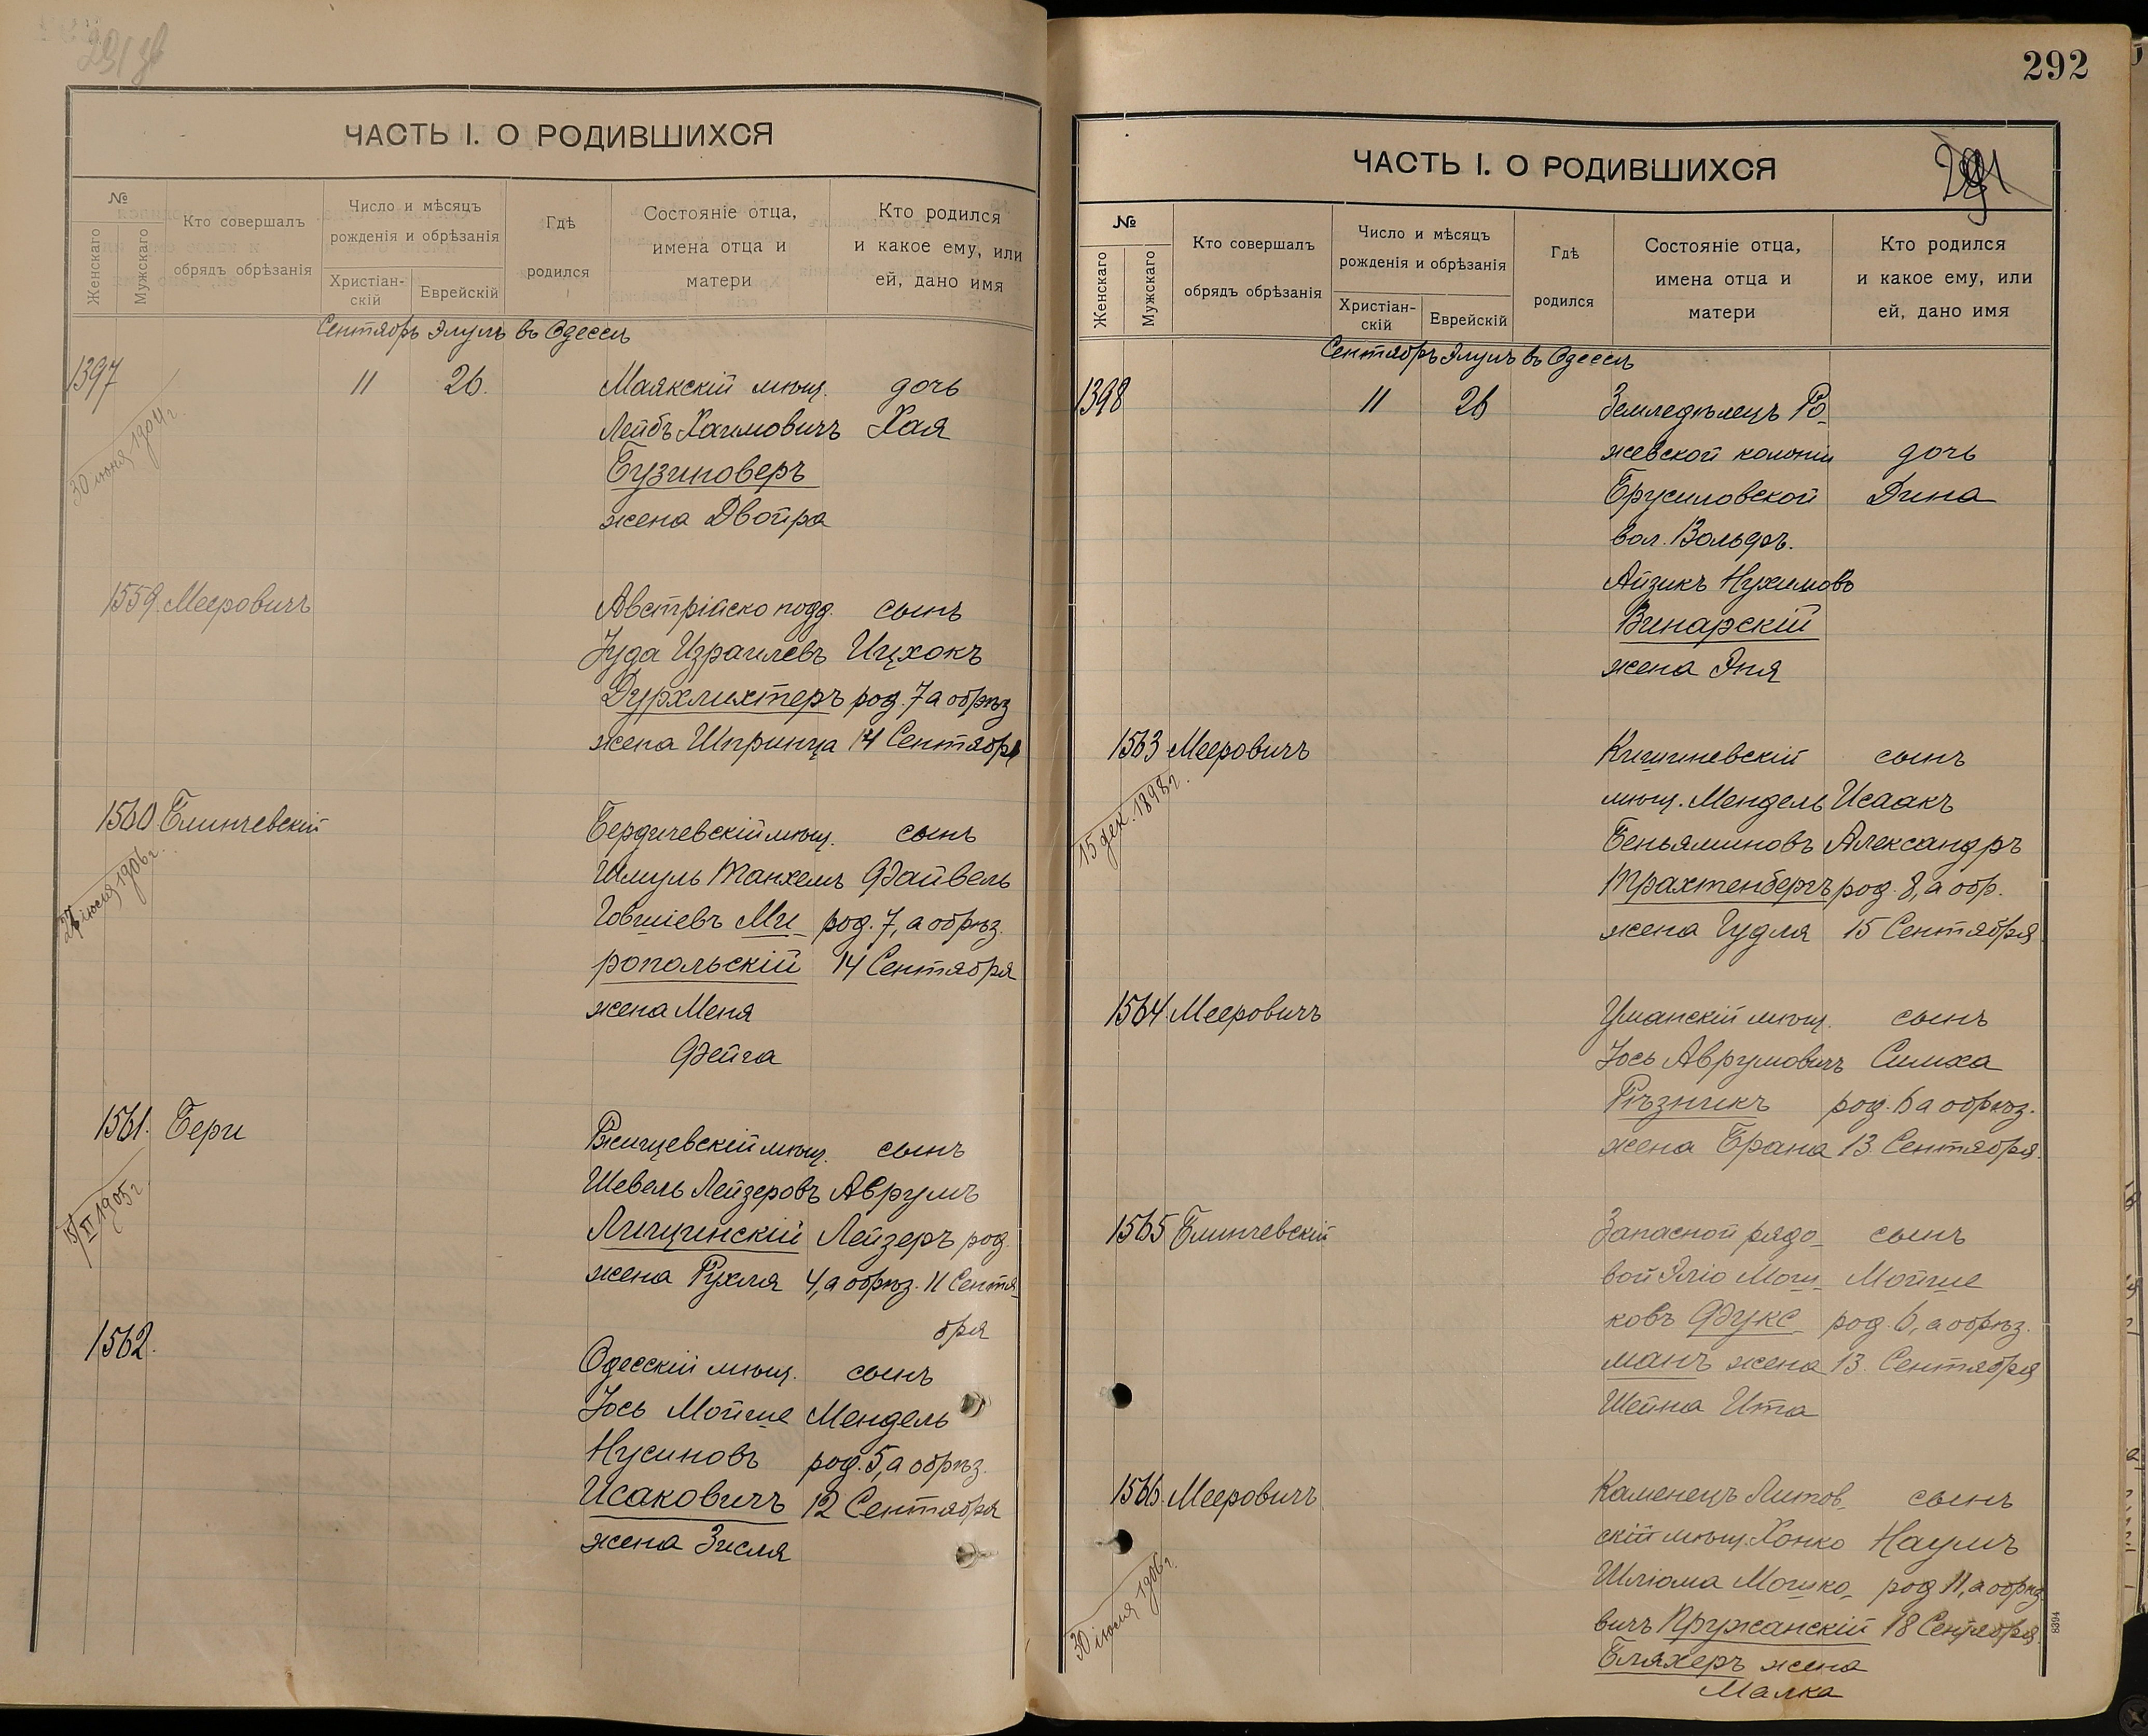 ЧАСТЬ I. О РОДИВШИХСЯ
№
Женскаго
Мужскаго
Кто совершалъ
обрядъ обрѣзанія
Число и мѣсяцъ
рожденія и обрѣзанія
Христіан-
скій
Еврейскій
Гдѣ
родился
Состояніе отца,
имена отца и
матери
Кто родился
и какое ему, или
ей, дано имя
Сентябрь Элулъ въ Одессѣ
1397 11 26. Маякскій мѣщ. дочь
30 июня 1904 г.
Лейбъ Хаимовичъ Хая
Бузиноверъ
жена Двойра
1559. Мееровичъ Австрійско подд. сынъ
Іуда Израилевъ Ицхокъ
Дурхлихтеръ род. 7 а обрѣз
жена Шпринца 14 Сентября
1560 Блинчевскій Бердичевскій мѣщ. сынъ
Шмуль Танхемъ Файвель
Говшіевъ Ми- род. 7, а обрѣз.
ропольскій 14 Сентября
жена Меня
Фейга
1561. Бери Ржищевскій мѣщ. сынъ
15/II 1905 г.
Шевель Лейзеровъ Аврумъ
Лищинскій Лейзеръ род.
жена Рухля 4, а обрѣз. 11 Сентя-
бря
1562. Одесскій мѣщ. сынъ
Іось Мойше Мендель
Нусиновъ род. 5, а обрѣз.
Исаковичъ 12 Сентября
жена Зисля
292
ЧАСТЬ I. О РОДИВШИХСЯ
291
№
Женскаго
Мужскаго
Кто совершалъ
обрядъ обрѣзанія
Число и мѣсяцъ
рожденія и обрѣзанія
Христіан-
скій
Еврейскій
Гдѣ
родился
Состояніе отца,
имена отца и
матери
Кто родился
и какое ему, или
ей, дано имя
Сентябрь Элулъ въ Одессѣ
1398 11 26 Земледѣлецъ Ро-
жевской колоніи дочь
Брусиловской Дина
вол. Вольфъ.
Айзикъ Нухимовъ
Винарскій
жена Эня
1563 Мееровичъ Кишиневскій сынъ
15 дек. 1898 г.
мѣщ. Мендель Исаакъ
Беньяминовъ Александръ
Трахтенбергъ род. 8, а обр.
жена Гудля 15 Сентября
1564. Мееровичъ Уманскій мѣщ. сынъ
Іось Аврумовичъ Симха
Рѣзникъ род. 6 а обрѣз.
жена Брана 13 Сентября.
1565 Блинчевскій Запасной рядо- сынъ
вой Эліо Мош- Мойше
ковъ Фукс- род. 6, а обрѣз.
манъ жена 13. Сентября
Шейна Ита
1566. Мееровичъ Каменецъ Литов- сынъ
скій мѣщ. Хонко Наумъ
30 іюля 1906 г.
Шліома Мошко- род 11, а обрѣз
вичъ Пружанскій 18 Сентября.
Бляхеръ жена
Малка
8394